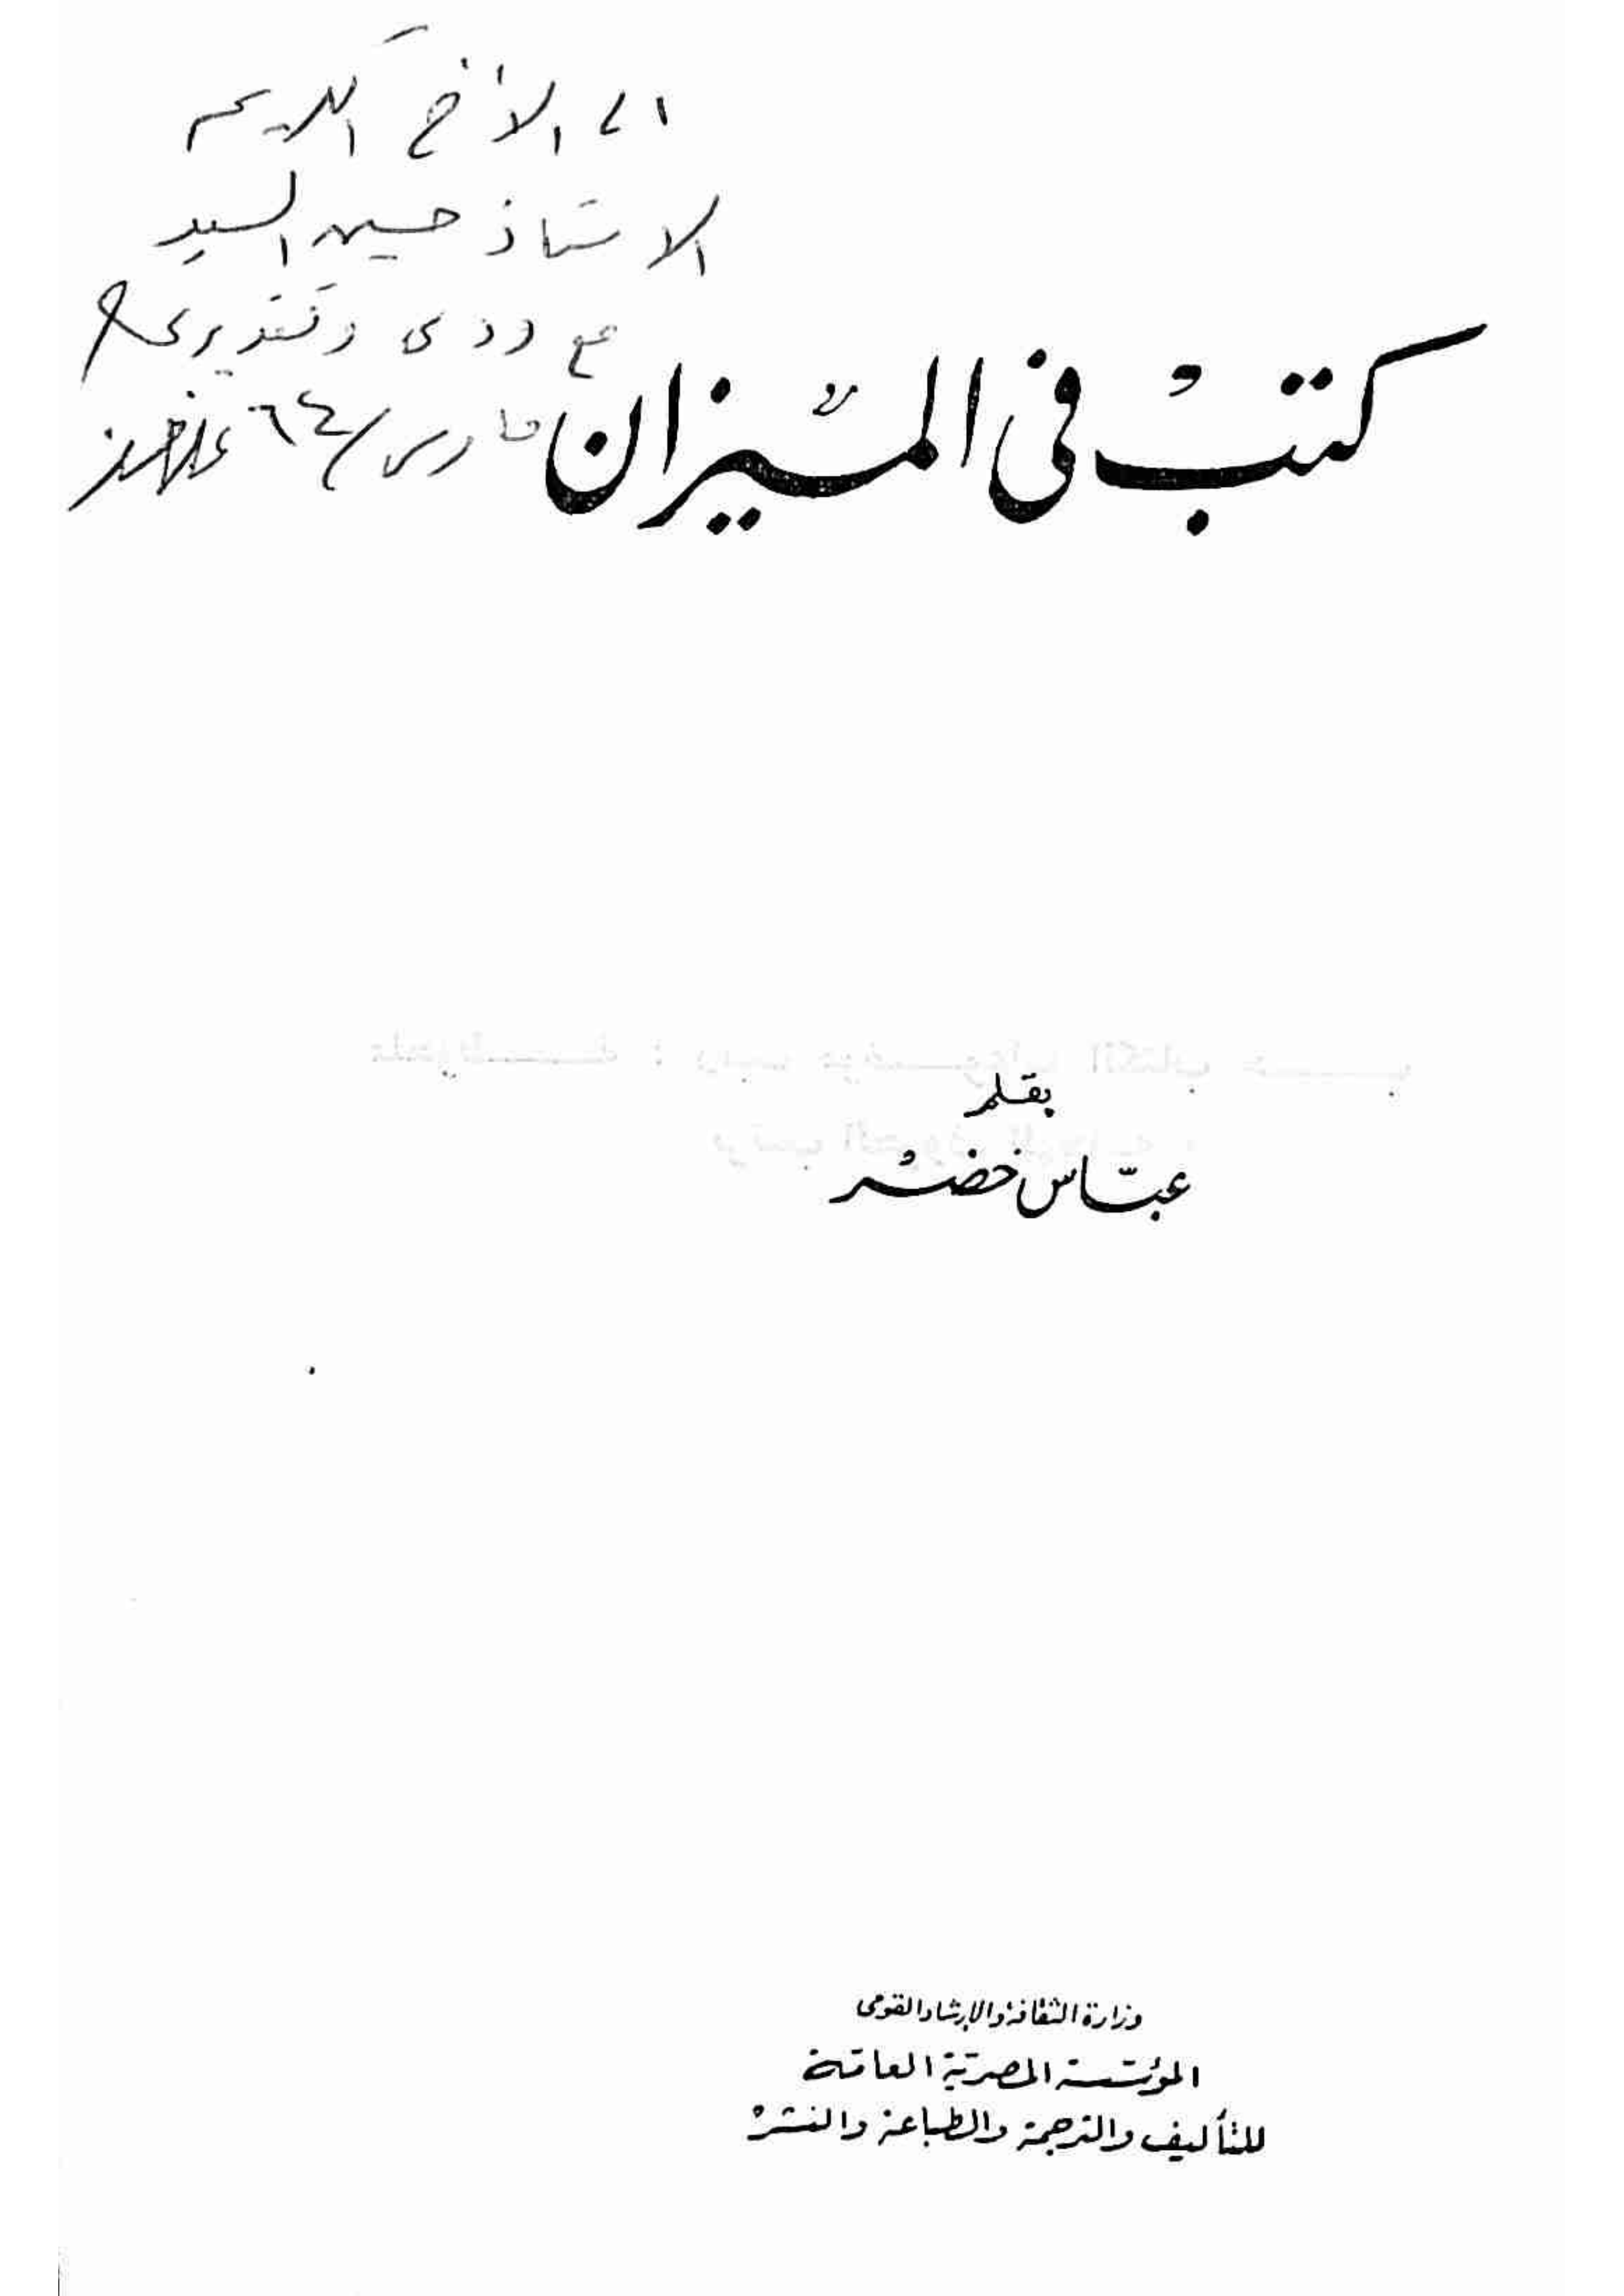 الى الأخ الكريم
الاستاذ حسين السيد
مع ودى وتقديرى
مارس / ٦٤ عباس خضر
كتب فى الميزان
بقلم
عباس خضر
وزارة الثقافة والإرشاد القومى
المؤسسة المصرية العامة
للتأليف والترجمة والطباعة والنشر